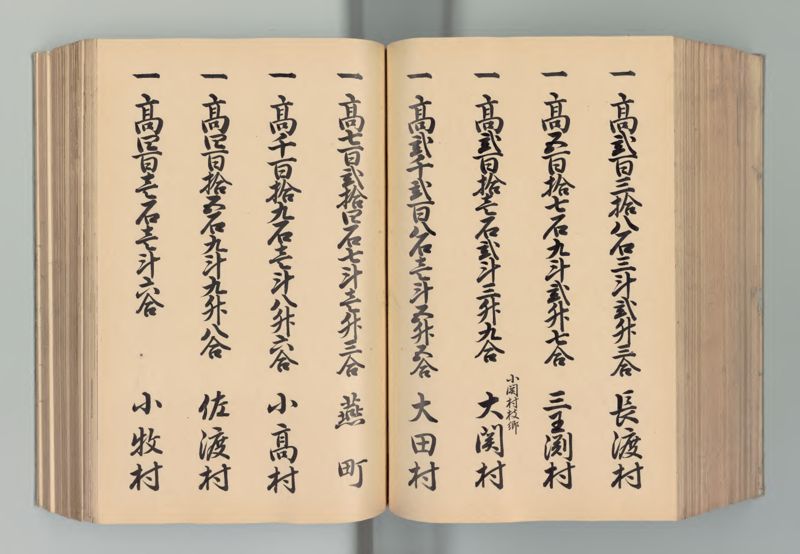 一 高弐百三拾八石三斗弐升三合 長渡村
一 高五百拾七石九斗弐升七合 三王渕村
一 高弐百拾壱石弐斗三升九合 小関村枝郷 大関村
一 高弐千弐百八石壱斗五升五合 大田村
一 高七百弐拾四石七斗壱升三合 燕町
一 高千百拾九石壱斗八升六合 小高村
一 高四百拾五石九斗九升八合 佐渡村
一 高四百壱石壱斗六合 小牧村